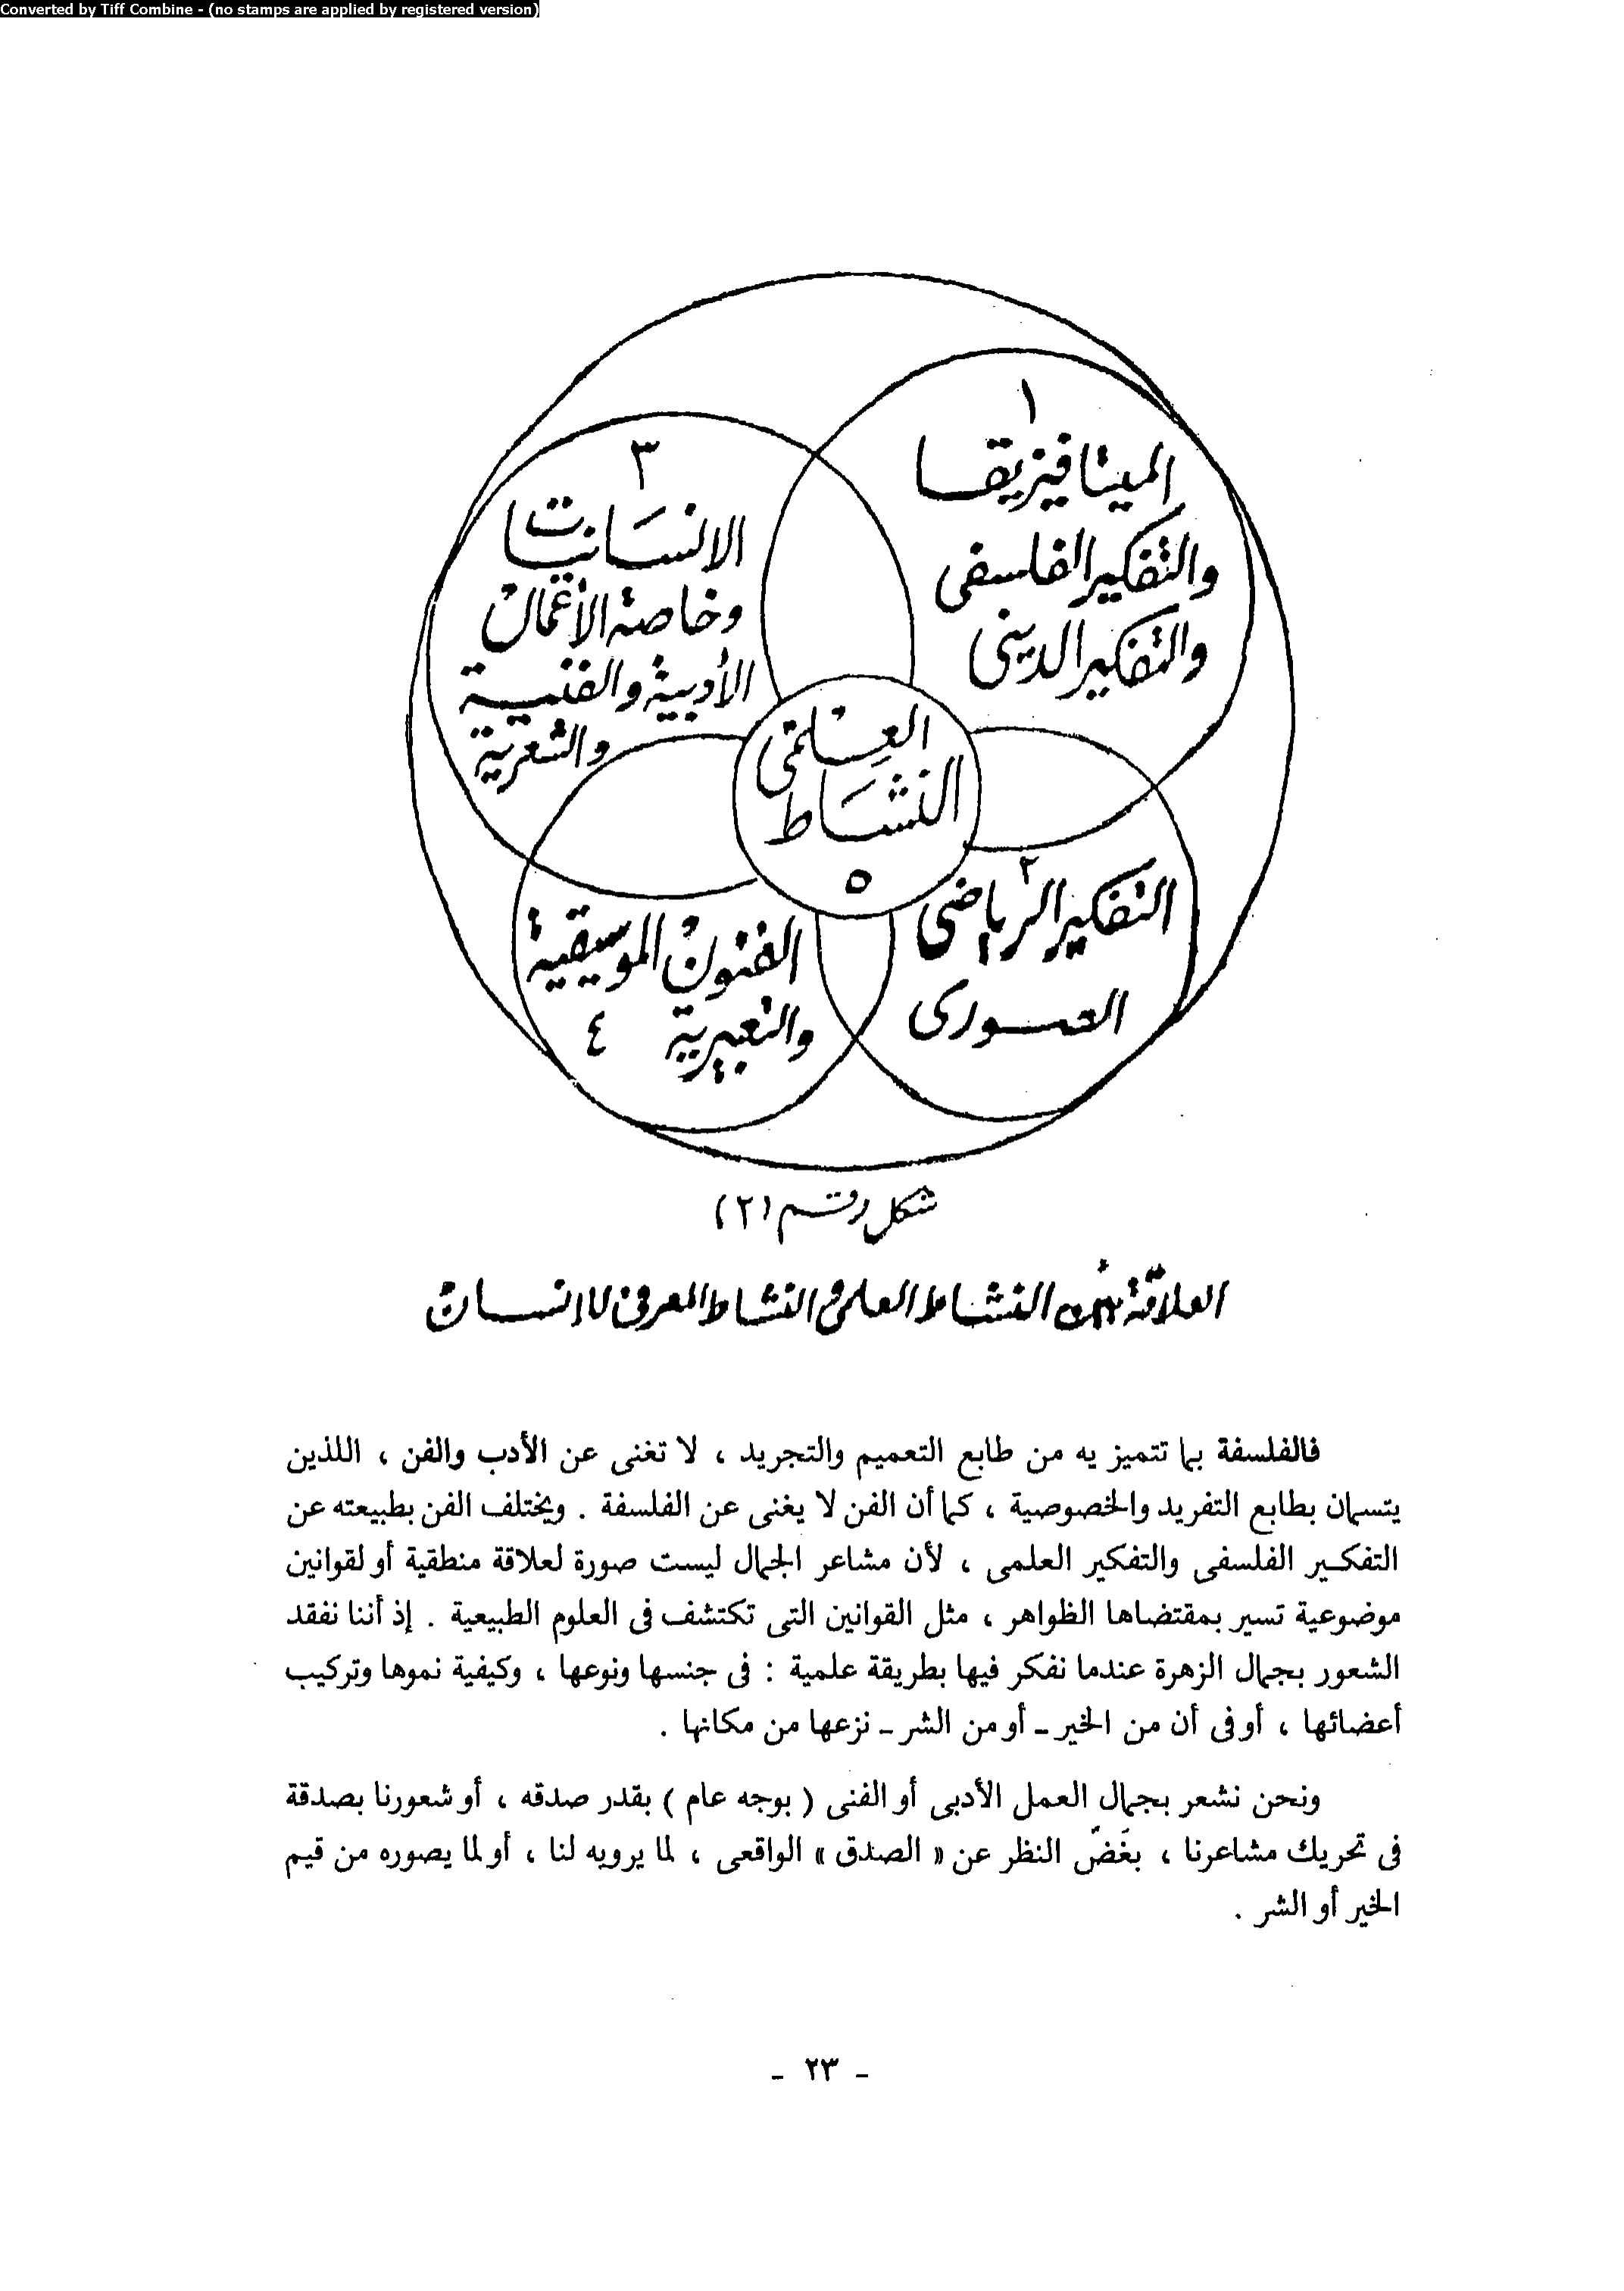 Converted by Tiff Combine - (no stamps are applied by registered version)
١
الميتافيزيقا
والتفكير الفلسفى
والتفكير الدينى
٣
الانسانيات
وخاصة الأعمال
الأدبية والفنية
والشعرية
العلمى
النشاط
٥
٢
التفكير الرياضى
الصورى
الفنون الموسيقية
والتعبيرية
٤
شكل رقم (٢)
العلاقة بين النشاط العلمى والنشاط المعرفى للانسان
فالفلسفة بما تتميز يه من طابع التعميم والتجريد ، لا تغنى عن الأدب والفن ، اللذين
يتسمان بطابع التفريد والخصوصية ، كما أن الفن لا يغنى عن الفلسفة . ويختلف الفن بطبيعته عن
التفكير الفلسفى والتفكير العلمى ، لأن مشاعر الجمال ليست صورة لعلاقة منطقية أو لقوانين
موضوعية تسير بمقتضاها الظواهر ، مثل القوانين التى تكتشف فى العلوم الطبيعية . إذ أننا نفقد
الشعور بجمال الزهرة عندما نفكر فيها بطريقة علمية : فى جنسها ونوعها ، وكيفية نموها وتركيب
أعضائها ، أو فى أن من الخير ـ أو من الشر ـ نزعها من مكانها .
ونحن نشعر بجمال العمل الأدبى أو الفنى ( بوجه عام ) بقدر صدقه ، أو شعورنا بصدقة
فى تحريك مشاعرنا ، بغَضّ النظر عن « الصدق » الواقعى ، لما يرويه لنا ، أو لما يصوره من قيم
الخير أو الشر .
- ٢٣ -